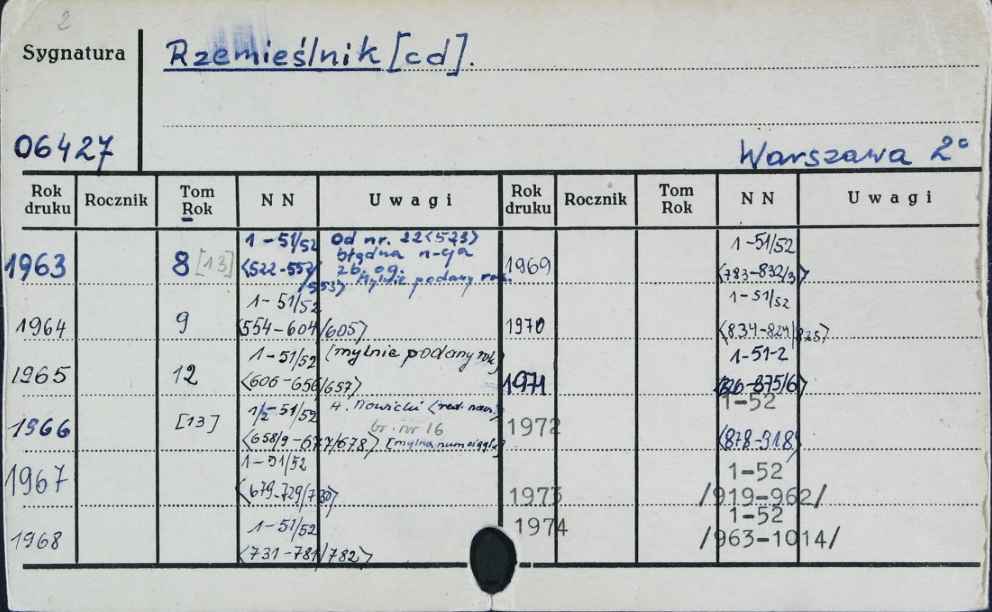 2
Sygnatura
Rzemieślnik [cd].
06427
Warszawa 2°
Rok druku Rocznik Tom Rok NN Uwagi Rok druku Rocznik Tom Rok NN Uwagi
1963 8 [13] 1-51/52 <522-552/553> Od nr. 22<523> błędna n-cja zb. og. Mylnie podany rok.
1964 9 1-51/52 <554-604/605>
1965 12 1-51/52 <606-656/657> [mylnie podany rok]
1966 [13] 1/2-51/52 <658/9-677/678> H. Nowicki <red. nacz.> br. nr 16 [mylna num ciągła]
1967 1-51/52 <679-729/730>
1968 1-51/52 <731-781/782>
1969 1-51/52 <783-832/3>
1970 1-51/52 <834-824/825>
1971 1-51-2 <826-875/6>
1972 1-52 <878-918>
1973 1-52 /919-962/
1974 1-52 /963-1014/